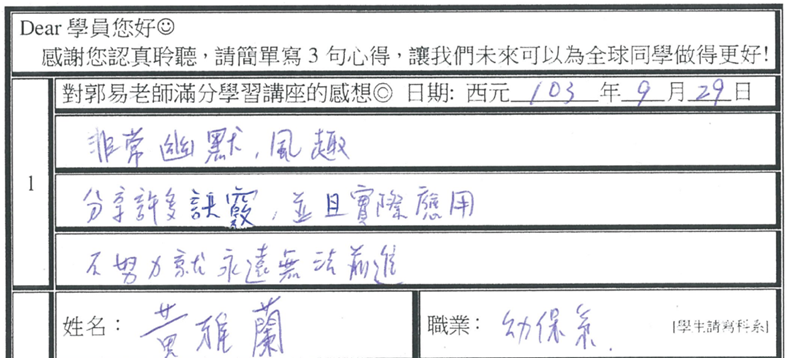 Dear 學員您好☺
感謝您認真聆聽，請簡單寫 3 句心得，讓我們未來可以為全球同學做得更好!
1
對郭易老師滿分學習講座的感想◎ 日期: 西元 103 年 9 月 29 日
非常幽默，風趣
分享許多訣竅，並且實際應用
不努力就永遠無法前進
姓名： 黃雅蘭
職業： 幼保系. [學生請寫科系]